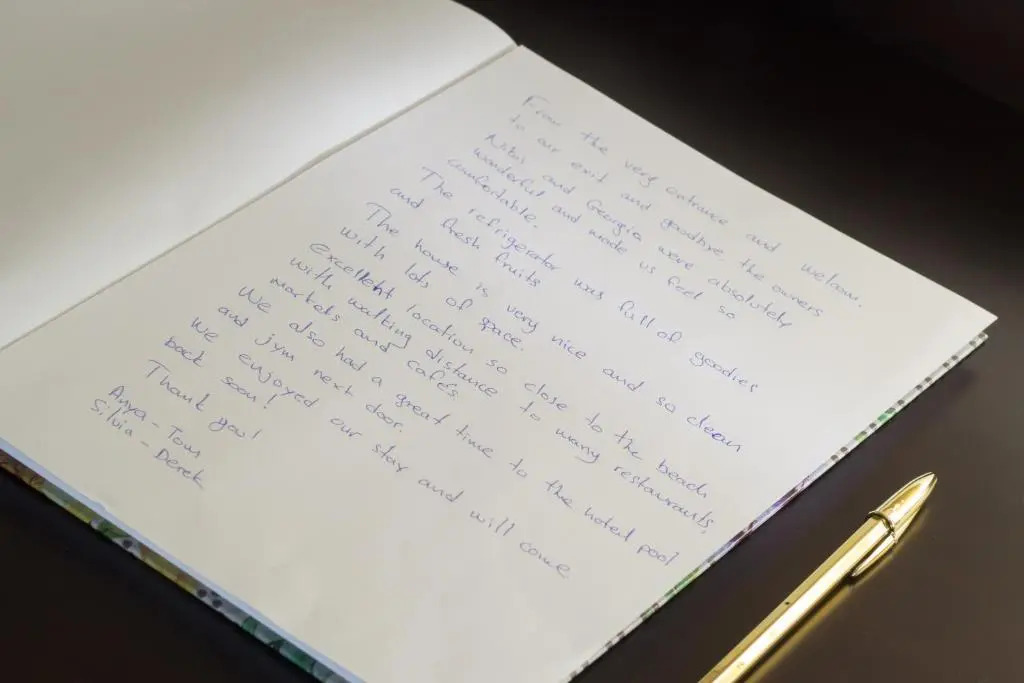 From the very entrance and welcom.
to our exit and goodbye, the owners
Nikos and Georgia were absolutely
wonderful and made us feel so
comfortable.
The refrigerator was full of goodies
and fresh fruits
The house is very nice and so clean
with lots of space.
Excellent location so close to the beach
with walking distance to many restaurants,
markets and cafés
We also had a great time to the hotel pool
and jym next door.
We enjoyed our stay and will come
back soon!
Thank you!
Anya - Tom
Silvia - Derek